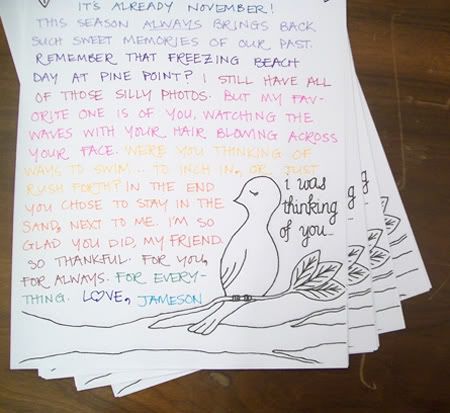 IT'S ALREADY NOVEMBER!
THIS SEASON ALWAYS BRINGS BACK
SUCH SWEET MEMORIES OF OUR PAST.
REMEMBER THAT FREEZING BEACH
DAY AT PINE POINT? I STILL HAVE ALL
OF THOSE SILLY PHOTOS. BUT MY FAV-
ORITE ONE IS OF YOU, WATCHING THE
WAVES WITH YOUR HAIR BLOWING ACROSS
YOUR FACE. WERE YOU THINKING OF
WAYS TO SWIM... TO INCH IN, OR, JUST
RUSH FORTH? IN THE END
YOU CHOSE TO STAY IN THE
SAND, NEXT TO ME. I'M SO
GLAD YOU DID, MY FRIEND.
SO THANKFUL. FOR YOU,
FOR ALWAYS. FOR EVERY-
THING. LOVE, JAMESON
i was
thinking
of you...